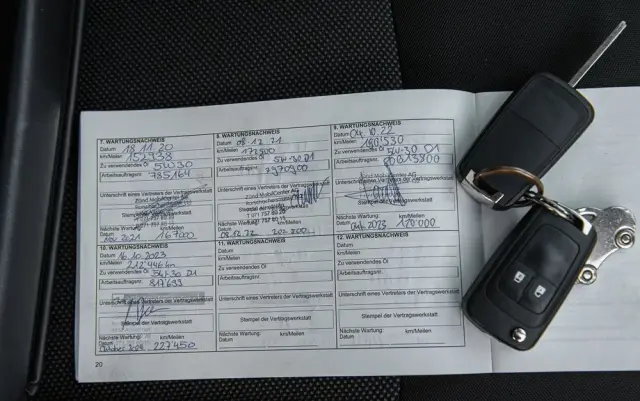 7. WARTUNGSNACHWEIS
Datum 18.11.20
km/Meilen 152'938
Zu verwendendes Öl 5W30
Arbeitsauftragsnr. 785164
Unterschrift eines Vertreters der Vertragswerkstatt
Zünd MobilCenter AG
Stempel der Vertragswerkstatt
Nächste Wartung: km/Meilen
Datum Nov 2021 167000
8. WARTUNGSNACHWEIS
Datum 08.12.21
km/Meilen
Zu verwendendes Öl 5W-30 D1
Arbeitsauftragsnr.
Unterschrift eines Vertreters der Vertragswerkstatt
Zünd MobilCenter AG
Nächste Wartung: km/Meilen
Datum
9. WARTUNGSNACHWEIS
Datum 04.10.22
km/Meilen
Zu verwendendes Öl 5W-30 D1
Arbeitsauftragsnr.
Unterschrift eines Vertreters der Vertragswerkstatt
Zünd MobilCenter AG
Stempel der Vertragswerkstatt
Nächste Wartung: km/Meilen
Datum Okt. 2023
10. WARTUNGSNACHWEIS
Datum 16.10.2023
km/Meilen 212'446km
Zu verwendendes Öl 5W-30 D1
Arbeitsauftragsnr. 817693
Unterschrift eines Vertreters der Vertragswerkstatt
Stempel der Vertragswerkstatt
Nächste Wartung: km/Meilen
Datum Oktober 227450
11. WARTUNGSNACHWEIS
Datum
km/Meilen
Zu verwendendes Öl
Arbeitsauftragsnr.
Unterschrift eines Vertreters der Vertragswerkstatt
Stempel der Vertragswerkstatt
Nächste Wartung: km/Meilen
Datum
12. WARTUNGSNACHWEIS
Datum
km/Meilen
Zu verwendendes Öl
Arbeitsauftragsnr.
Unterschrift eines Vertreters der Vertragswerkstatt
Stempel der Vertragswerkstatt
Nächste Wartung: km/Meilen
Datum
20